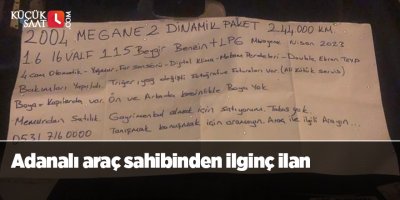 KÜÇÜK
SAAT
.COM
2004 MEGANE 2 DİNAMİK PAKET 244.000 KM.
1.6 16 VALF 115 Beygir Benzin + LPG Muayene Nisan 2023
4 cam Otomatik - Yağmur, Far sensörü - Dijital Klima - Makam Perdeleri - Double Ekran Teyp
Bakımları Yapıldı. Triger, yağ değişti Fotoğraf ve Faturaları var
Boya Kapılarda var. Ön ve Arkada kesinlikle Boya Yok
Memurdan Satılık. Gayrimenkul almak için satıyorum. Takas yok
0531 716.0000 Tanışmak konuşmak için aramayın. Araç ile ilgili Arayın...
Adanalı araç sahibinden ilginç ilan